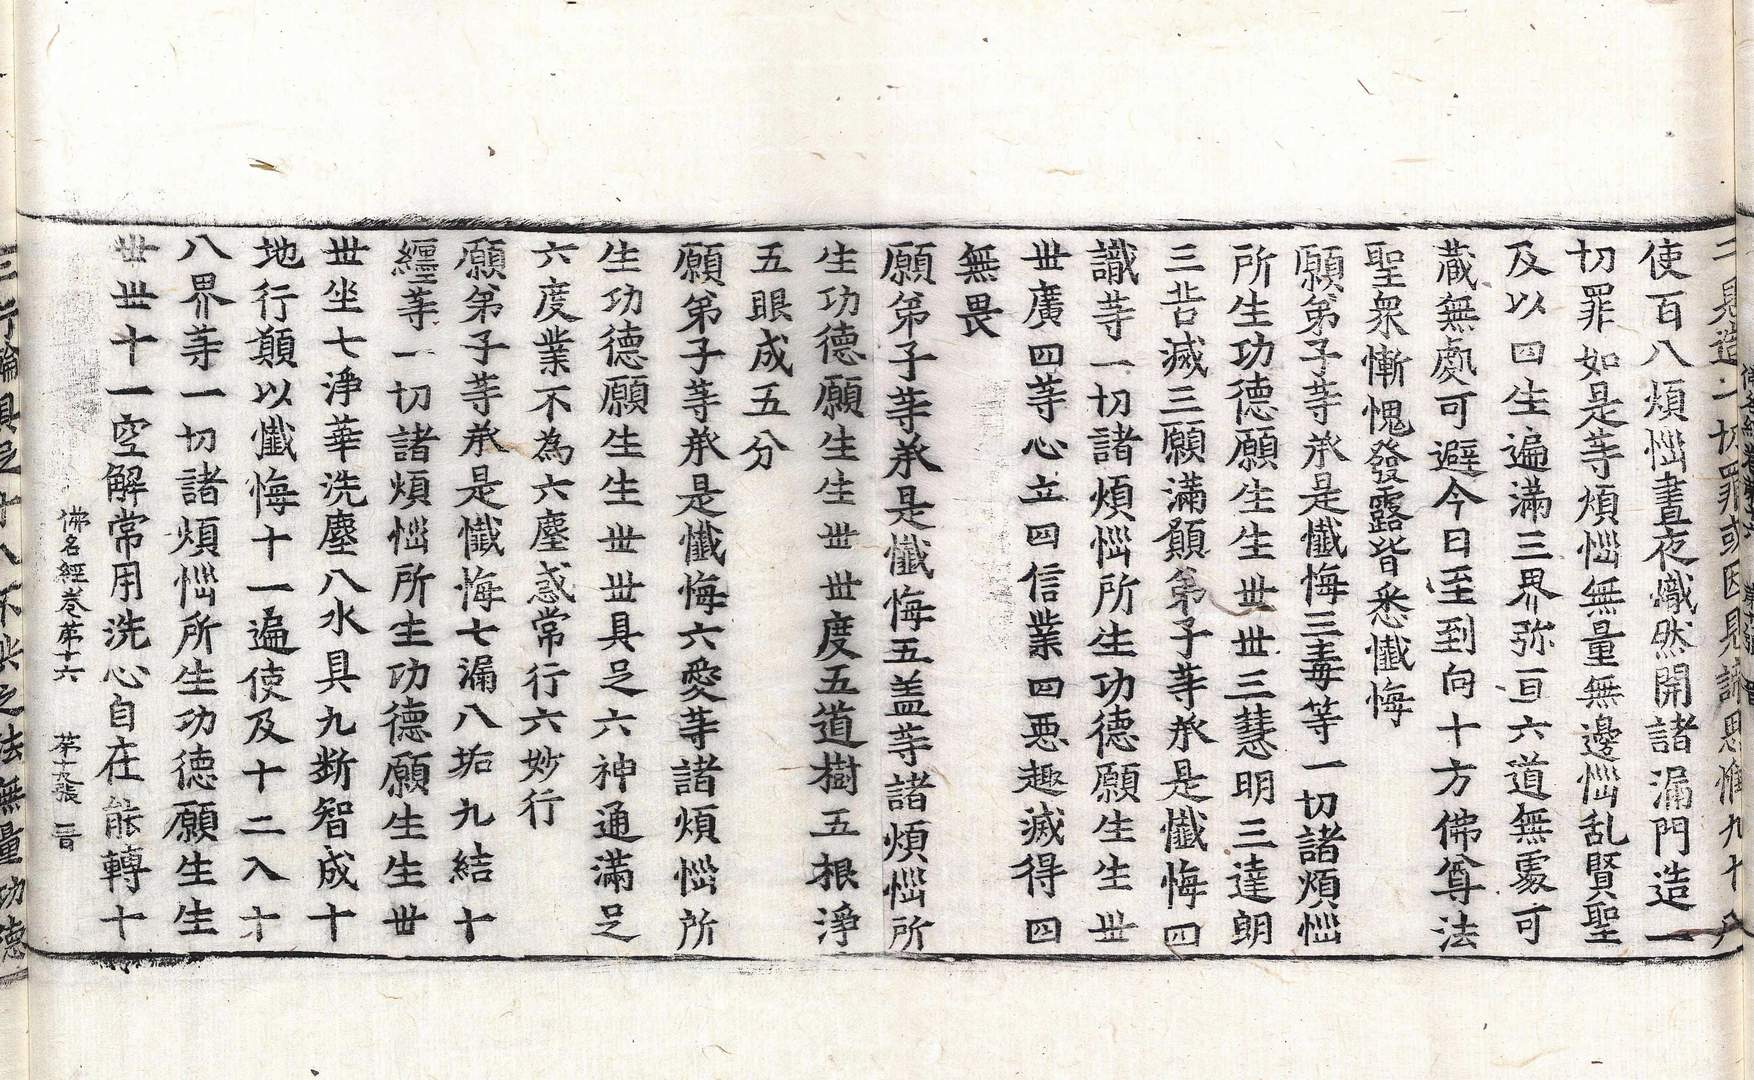 二見造一切罪或因見諦思惟九十八
使百八煩惱晝夜熾然開諸漏門造一
切罪如是等煩惱無量無邊惱乱賢聖
及以四生遍滿三界弥亘六道無處可
蔵無處可避今日至到向十方佛尊法
聖衆慚愧發露皆悉懺悔
願弟子等承是懺悔三毒等一切諸煩惱
所生功德願生生世世三慧明三達朗
三苦滅三願滿願弟子等承是懺悔四
識等一切諸煩惱所生功德願生生世
世廣四等心立四信業四惡趣滅得四
無畏
願弟子等承是懺悔五盖等諸煩惱所
生功德願生生世世度五道樹五根淨
五眼成五分
願弟子等承是懺悔六愛等諸煩惱所
生功德願生生世世具足六神通滿足
六度業不為六塵惑常行六妙行
願弟子等承是懺悔七漏八垢九結十
纏等一切諸煩惱所生功德願生生世
世坐七淨華洗塵八水具九断智成十
地行願以懺悔十一遍使及十二入十
八界等一切諸煩惱所生功德願生生
世世十一空解常用洗心自在能轉十
佛名經卷第十六 第十九張 晋
二行輪具足十八不共之法無量功德